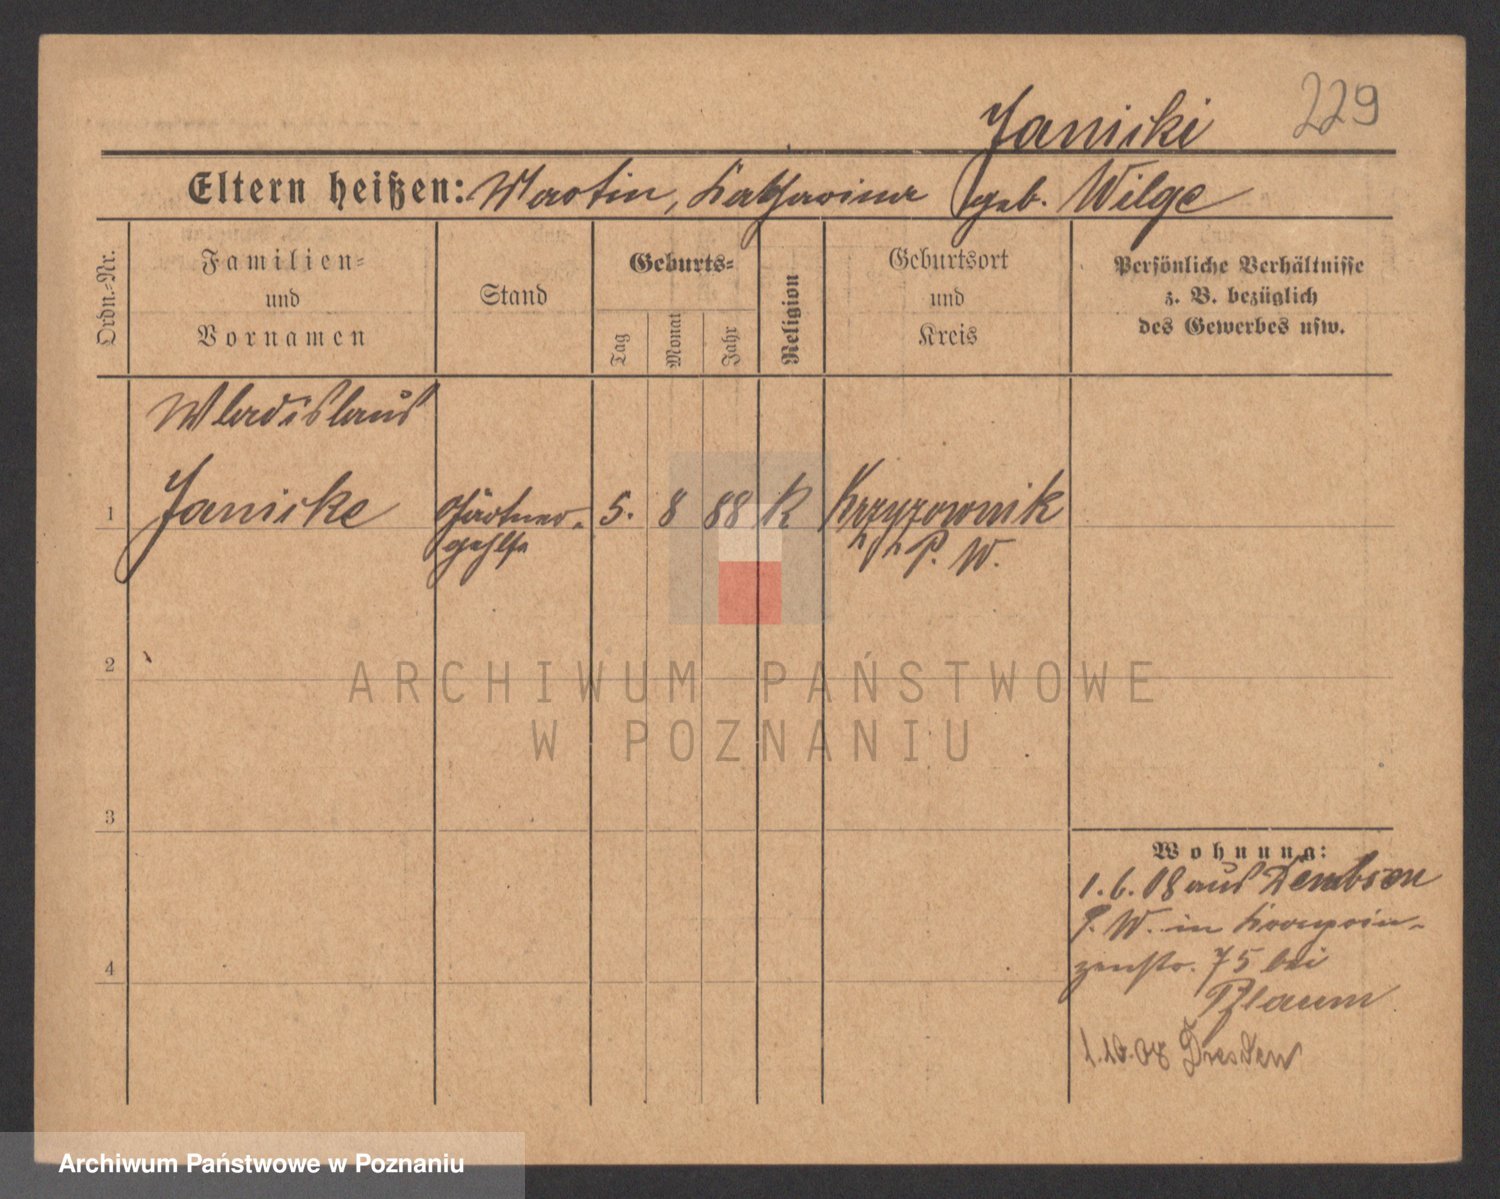 Janicki 229
Eltern heißen: Martin, Katharina geb. Wilge
Ordn.-Nr.
Familien-
und
Vornamen
Stand
Geburts-
Tag
Monat
Jahr
Religion
Geburtsort
und
Kreis
Persönliche Verhältnisse
z. B. bezüglich
des Gewerbes usw.
Wladislaus
1 Janicke Gärtner- 5. 8 88 K Krzyzownik
gehlfe P. W.
2
3
4
Wohnung:
1.6.08 aus Dembsen
P. W. in Kronprin-
zenstr. 75 bei
Pflaum
1.10.08 Dresden
ARCHIWUM PAŃSTWOWE
W POZNANIU
Archiwum Państwowe w Poznaniu